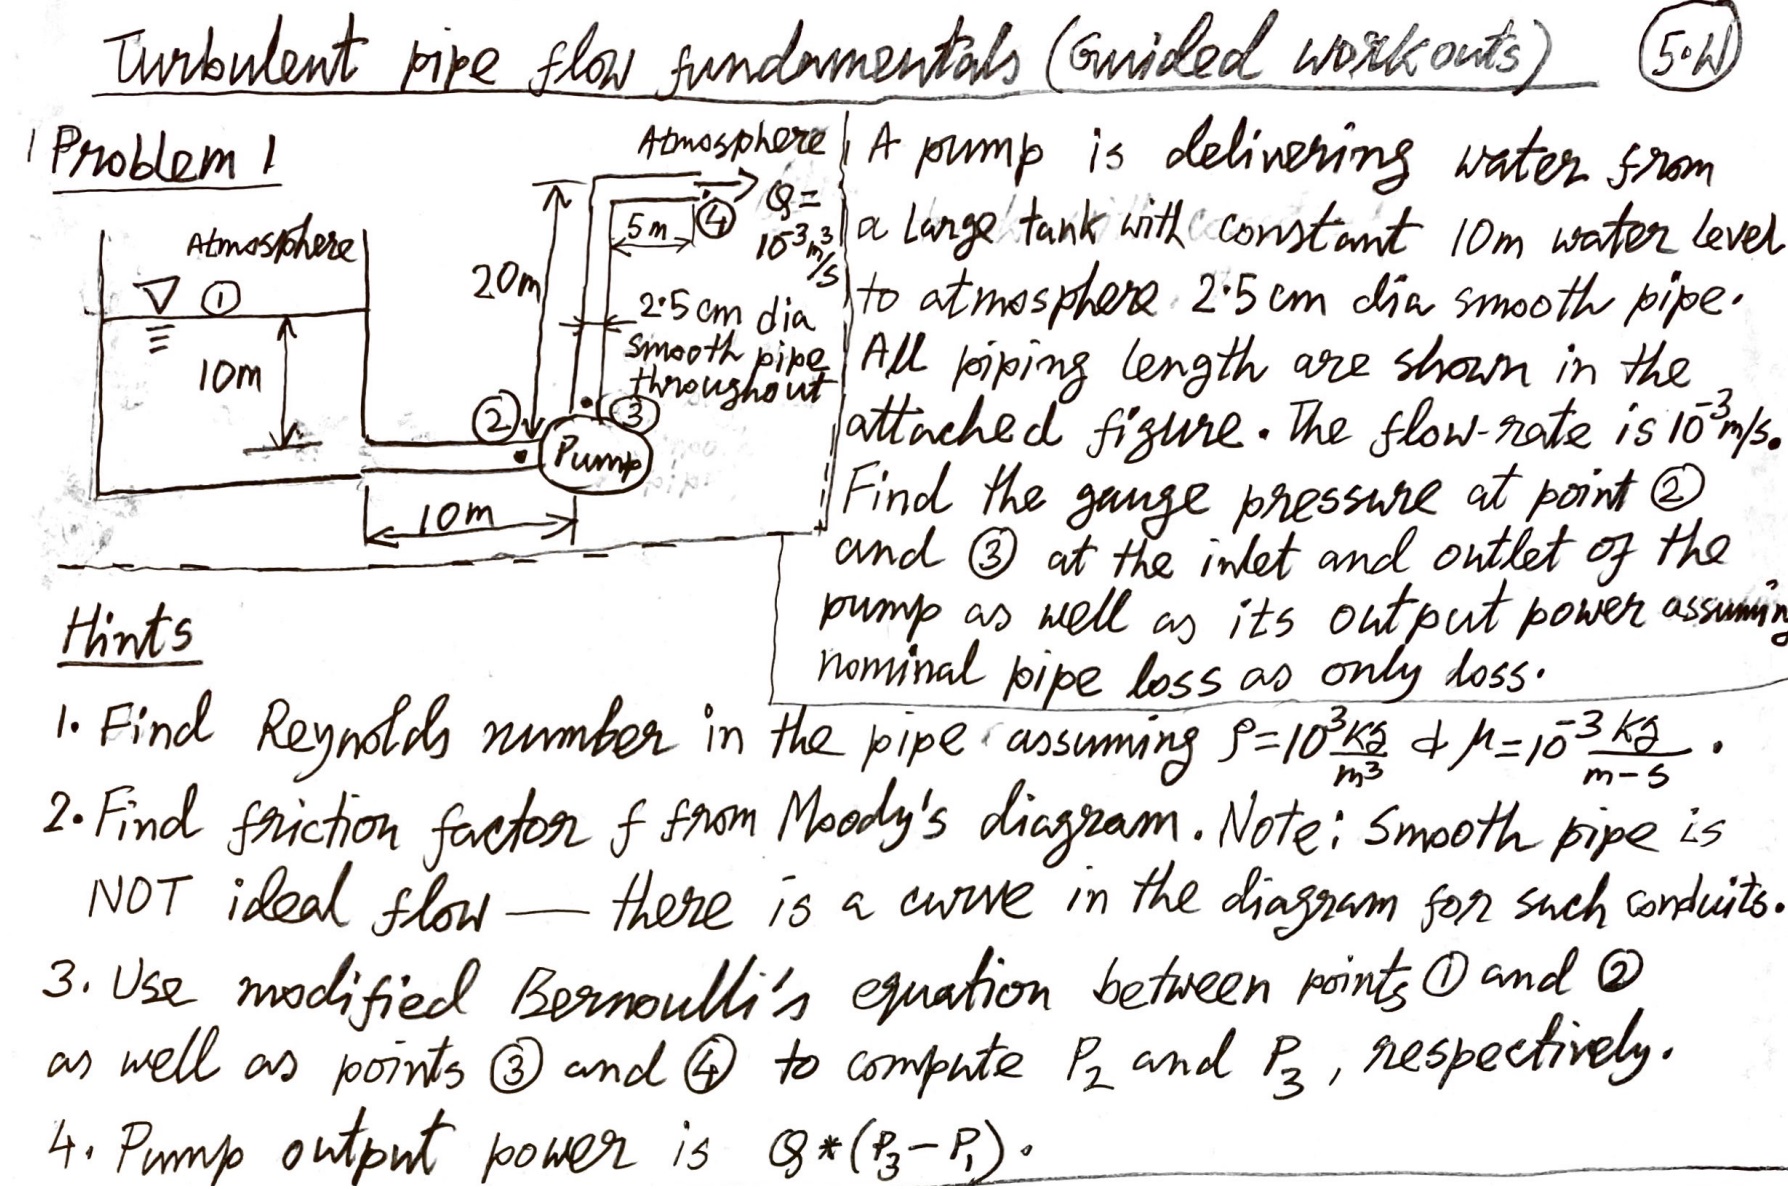 Turbulent pipe flow fundamentals (Guided workouts) 5.W
Problem 1
Atmosphere
①
10m
20m
Atmosphere
5m ④
Q=
10⁻³m³/s
2.5 cm dia
smooth pipe
throughout
② ③
Pump
10m
A pump is delivering water from
a large tank with constant 10m water level
to atmosphere 2.5 cm dia smooth pipe.
All piping length are shown in the
attached figure. The flow-rate is 10⁻³m/s.
Find the gauge pressure at point ②
and ③ at the inlet and outlet of the
pump as well as its output power assuming
nominal pipe loss as only loss.
Hints
1. Find Reynolds number in the pipe assuming ρ=10³ kg/m³ & μ=10⁻³ kg/m-s.
2. Find friction factor f from Moody's diagram. Note: Smooth pipe is
NOT ideal flow — there is a curve in the diagram for such conduits.
3. Use modified Bernoulli's equation between points ① and ②
as well as points ③ and ④ to compute P₂ and P₃, respectively.
4. Pump output power is Q*(P₃-P₁).